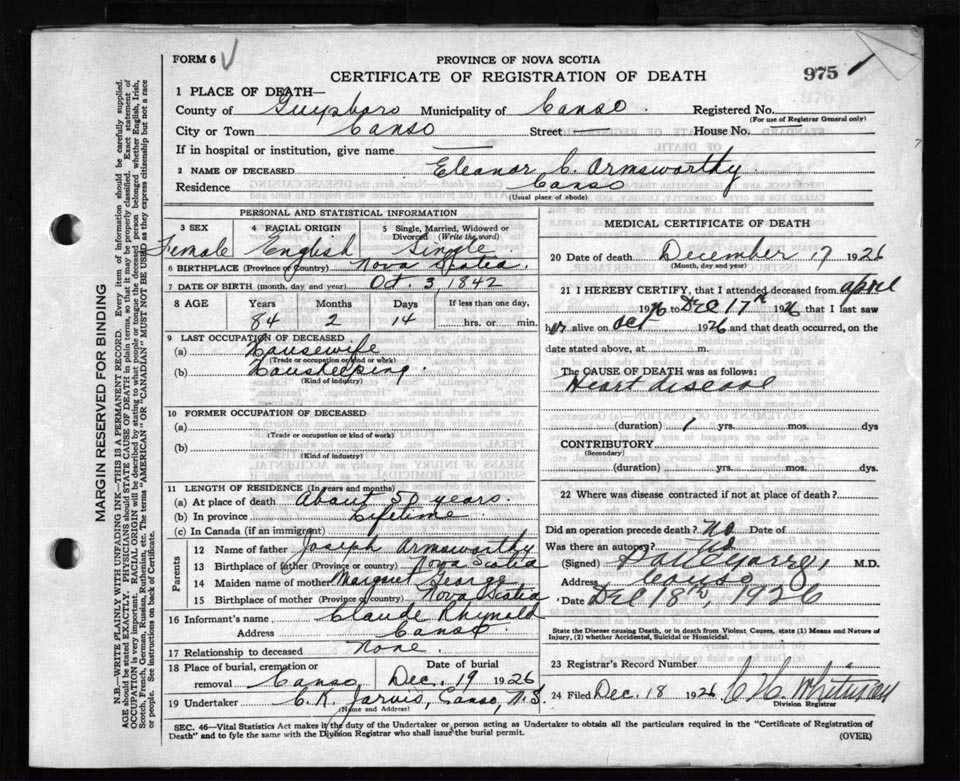 FORM 6 V
PROVINCE OF NOVA SCOTIA
CERTIFICATE OF REGISTRATION OF DEATH
975
1 PLACE OF DEATH—
County of Guysboro Municipality of Canso Registered No.
(For use of Registrar General only)
City or Town Canso Street House No.
If in hospital or institution, give name
2 NAME OF DECEASED Eleanor C. Armsworthy
Residence Canso
(Usual place of abode)
PERSONAL AND STATISTICAL INFORMATION
3 SEX 4 RACIAL ORIGIN 5 Single, Married, Widowed or Divorced (Write the word)
Female English Single
6 BIRTHPLACE (Province or Country) Nova Scotia
7 DATE OF BIRTH (month, day and year) Oct. 3, 1842
8 AGE Years Months Days If less than one day,
84 2 14 hrs. or min.
9 LAST OCCUPATION OF DECEASED
(a) Housewife
(Trade or occupation or kind or work)
(b) Housekeeping
(Kind of industry)
10 FORMER OCCUPATION OF DECEASED
(a)
(Trade or occupation or kind of work)
(b)
(Kind of industry)
11 LENGTH OF RESIDENCE (In years and months)
(a) At place of death About 50 years.
(b) In province Lifetime
(c) In Canada (if an immigrant)
Parents
12 Name of father Joseph Armsworthy
13 Birthplace of father (Province or Country) Nova Scotia
14 Maiden name of mother Margaret George
15 Birthplace of mother (Province or Country) Nova Scotia
16 Informant's name Claude Rhynold
Address Canso
17 Relationship to deceased None
18 Place of burial, cremation or removal Canso Date of burial Dec. 19 1926
19 Undertaker C. K. Jarvis, Canso, N.S.
(Name and Address)
MEDICAL CERTIFICATE OF DEATH
20 Date of death December 17 1926
(Month, day and year)
21 I HEREBY CERTIFY, that I attended deceased from April
1926 to Dec 17th 1926 that I last saw
her alive on Oct 1926 and that death occurred, on the
date stated above, at m.
The CAUSE OF DEATH was as follows:
Heart disease
(duration) 1 yrs. mos. dys
CONTRIBUTORY
(Secondary)
(duration) yrs. mos. dys
22 Where was disease contracted if not at place of death?
Did an operation precede death? No Date of
Was there an autopsy? No
(Signed) M.D.
Address Canso
Date Dec 18th, 1926
State the Disease causing Death, or in death from Violent Causes, state (1) Means and Nature of
Injury, (2) whether Accidental, Suicidal or Homicidal.
23 Registrar's Record Number
24 Filed Dec. 18 1926
Division Registrar
SEC. 46—Vital Statistics Act makes it the duty of the Undertaker or person acting as Undertaker to obtain all the particulars required in the "Certificate of Registration of
Death" and to fyle the same with the Division Registrar who shall issue the burial permit.
(OVER)
MARGIN RESERVED FOR BINDING
N.B.—WRITE PLAINLY WITH UNFADING INK—THIS IS A PERMANENT RECORD. Every item of information should be carefully supplied.
AGE should be stated EXACTLY. PHYSICIANS should STATE CAUSE OF DEATH in plain terms, so that it may be properly classified. Exact statement of
OCCUPATION is very important. RACIAL ORIGIN will be described by stating to what people or tongue the deceased person belonged whether English, Irish,
Scotch, French, German, Russian, Ruthenian, etc. The terms "AMERICAN" or "CANADIAN" MUST NOT BE USED as they express citizenship but not a race
or people. See instructions on back of Certificate.